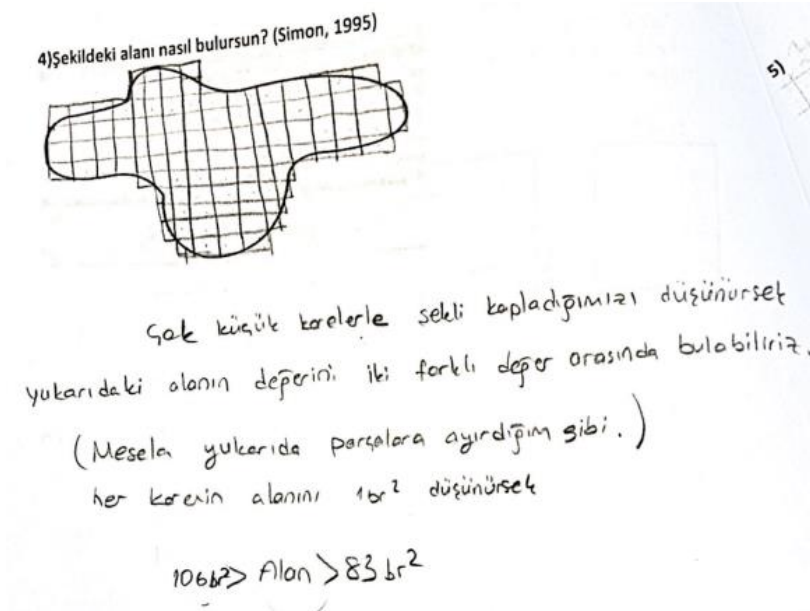 4)Şekildeki alanı nasıl bulursun? (Simon, 1995)
5)
Çok küçük karelerle şekli kapladığımızı düşünürsek
yukarıdaki alanın değerini iki farklı değer arasında bulabiliriz.
(Mesela yukarıda parçalara ayırdığım gibi.)
her karenin alanını 1br² düşünürsek
106br² > Alan > 83 br²